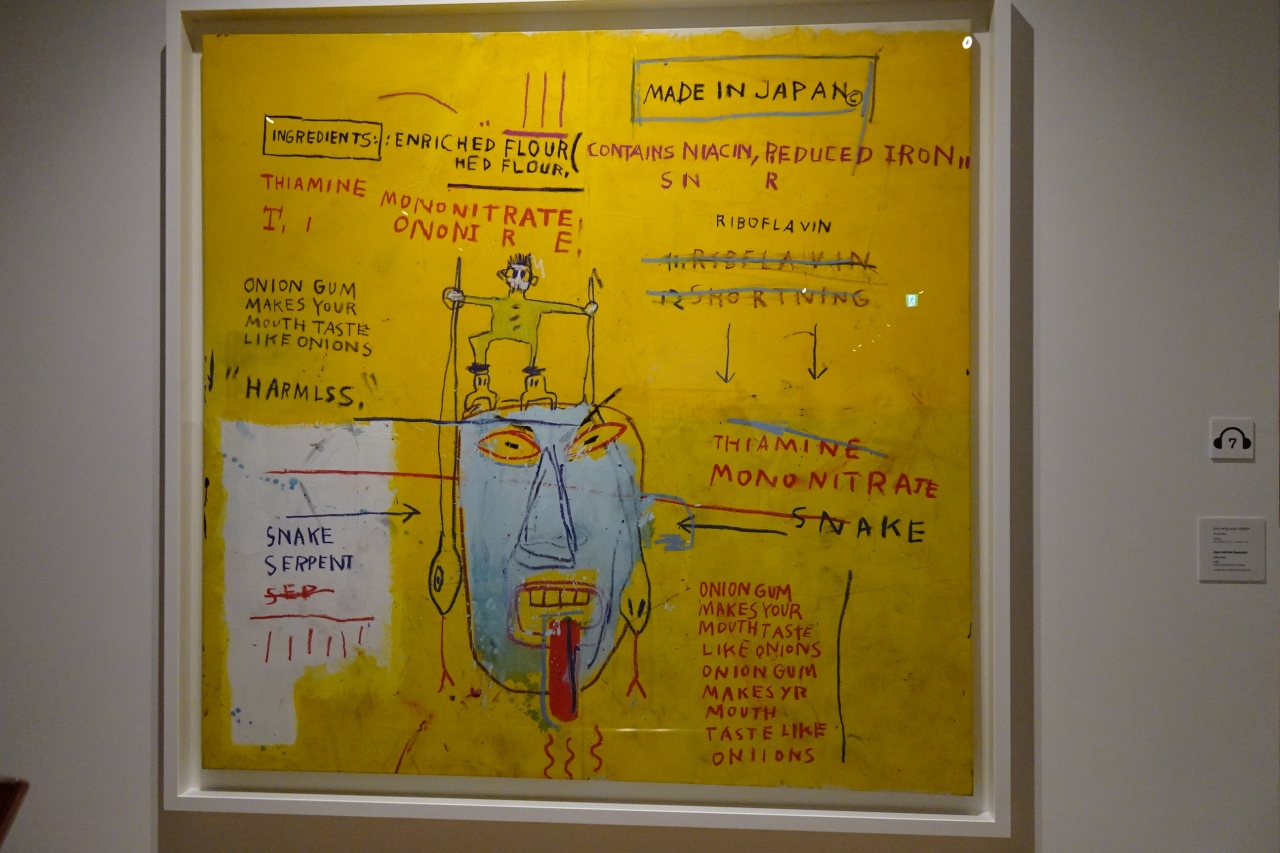 MADE IN JAPAN©
INGREDIENTS: : ENRICHED FLOUR (
HED FLOUR,
CONTAINS NIACIN, REDUCED IRON,,
S N R
THIAMINE MONONITRATE,
T, I ONONI R E,
RIBOFLAVIN
RIBFLAVIN
SHORTNING
ONION GUM
MAKES YOUR
MOUTH TASTE
LIKE ONIONS
"HARMLSS,"
THIAMINE
MONONITRATE
SNAKE
SNAKE
SERPENT
SEP
ONION GUM
MAKES YOUR
MOUTH TASTE
LIKE ONIONS
ONION GUM
MAKES YR
MOUTH
TASTE LIKE
ONIIONS
7